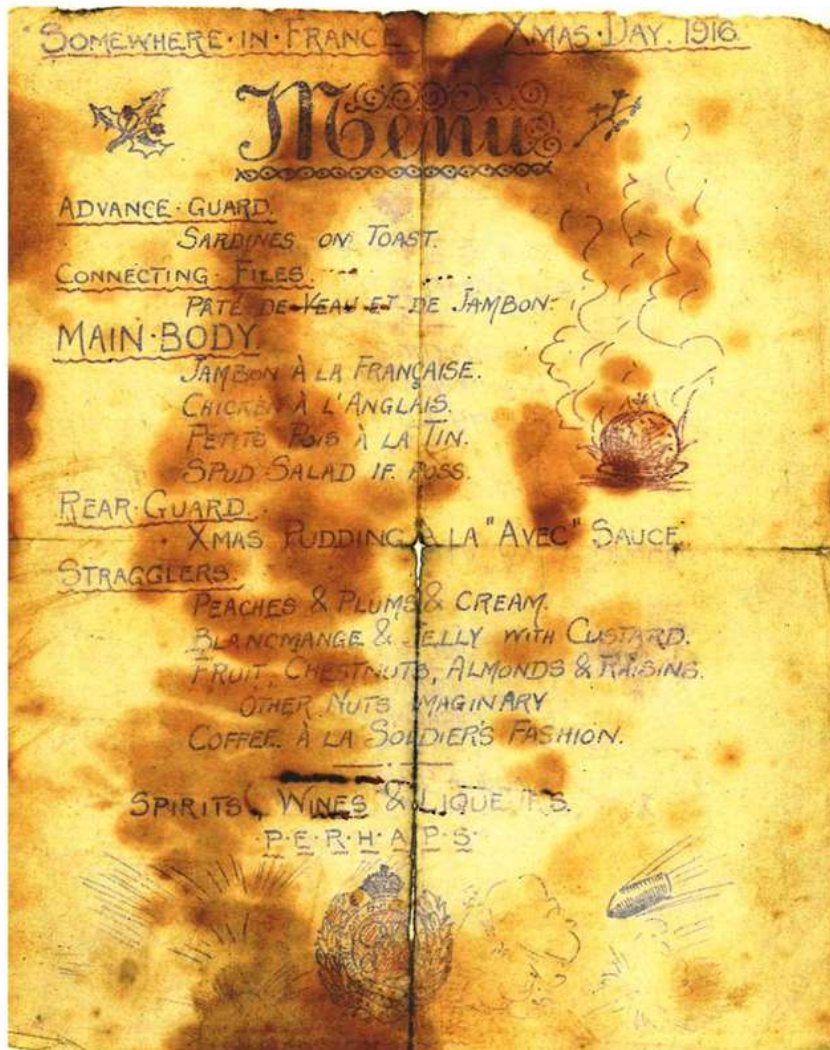 SOMEWHERE·IN·FRANCE XMAS·DAY. 1916.
Menu
ADVANCE·GUARD.
SARDINES ON TOAST.
CONNECTING·FILES.
PATÉ DE VEAU ET DE JAMBON.
MAIN·BODY.
JAMBON À LA FRANÇAISE.
CHICKEN À L'ANGLAIS.
PETITS POIS À LA TIN.
SPUD SALAD IF POSS.
REAR·GUARD.
XMAS PUDDING À LA "AVEC" SAUCE.
STRAGGLERS.
PEACHES & PLUMS & CREAM.
BLANCMANGE & JELLY WITH CUSTARD.
FRUIT, CHESTNUTS, ALMONDS & RAISINS.
OTHER NUTS IMAGINARY
COFFEE À LA SOLDIER'S FASHION.
SPIRITS, WINES & LIQUEURS.
·P·E·R·H·A·P·S·